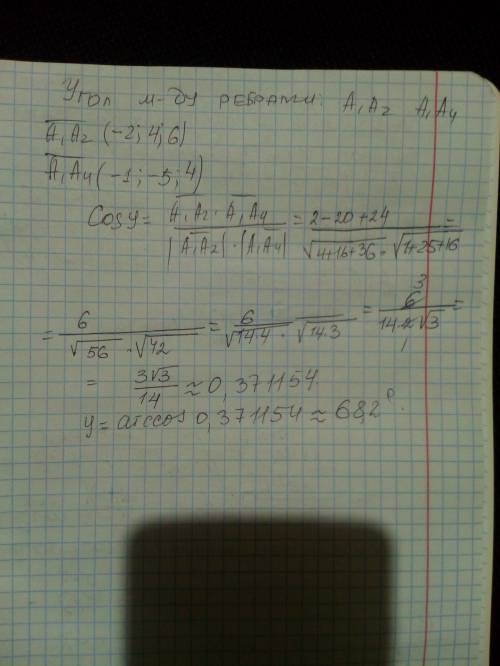 Угол м-ду ребрами A₁A₂ A₁A₄
A₁A₂ (-2; 4; 6)
A₁A₄ (-1; -5; 4)
Cosγ = A₁A₂ · A₁A₄ / |A₁A₂| · |A₁A₄| = 2-20+24 / √4+16+36 · √1+25+16 =
= 6 / √56 · √42 = 6 / √14·4 · √14·3 = 6 3 / 14·2√3 1 =
= 3√3 / 14 ≈ 0,371154
γ = arccos 0,371154 ≈ 68,2°.